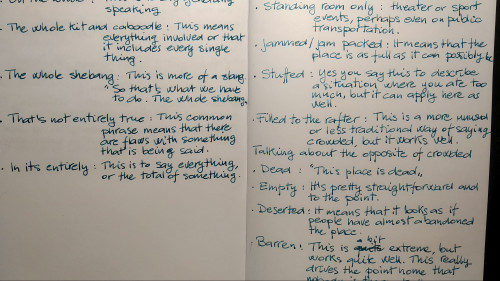 speaking.
• The whole kit and caboodle : This means
everything involved or that
it includes every single
thing.
• The whole shebang : This is more of a slang.
"So that's what we have
to do. The whole shebang.
• That's not entirely true : This common
phrase means that there
are flaws with something
that is being said.
• In its entirely : This is to say everything,
or the total of something.
• Standing room only : theater or sport
events, perhaps even on public
transportation.
• Jammed/jam packed : It means that the
place is as full as it can possibly be
• Stuffed : yes you say this to describe
a situation where you ate too
much, but it can apply here as
well.
• Filled to the rafter : This is a more
or less traditional way of saying
crowded, but it works well.
Talking about the opposite of crowded
• Dead : "This place is dead"
• Empty : It's pretty straightforward and
to the point.
• Deserted : It means that it looks as if
people have almost abandoned
the place.
• Barren : This is a bit extreme, but
works quite well. This really
drives the point home that